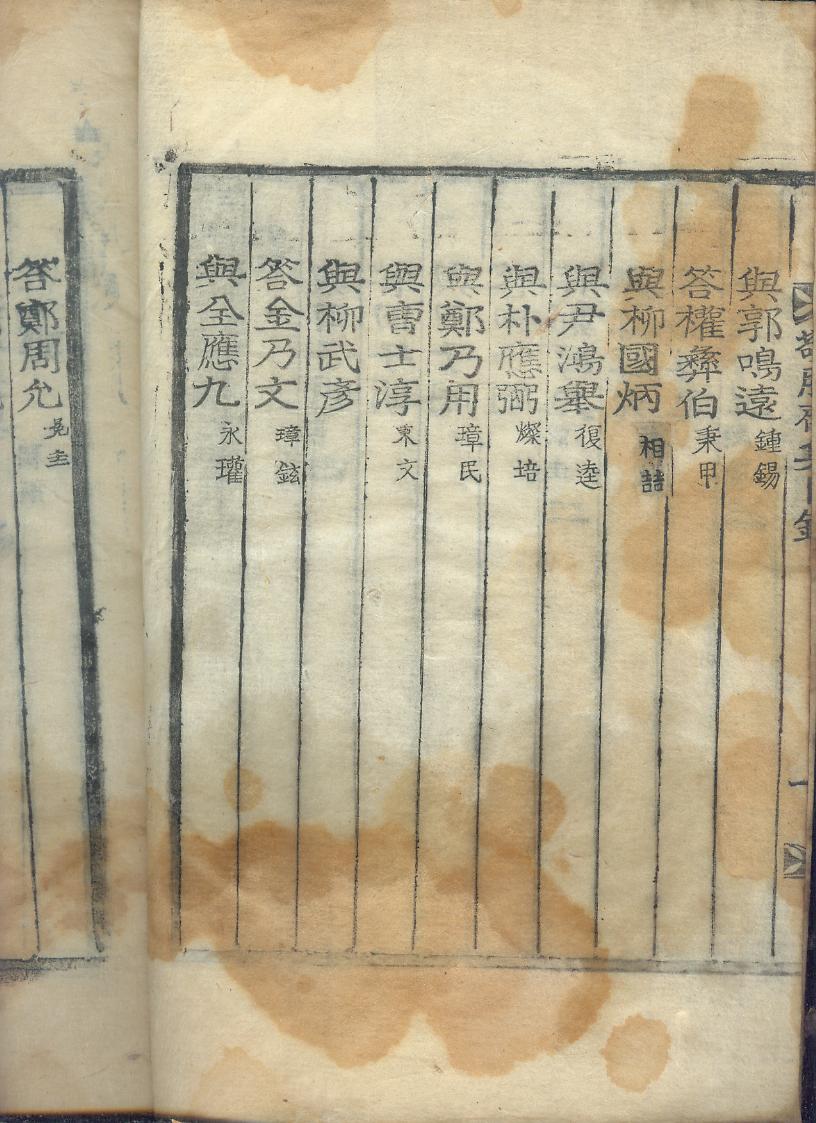 與郭鳴遠 鍾錫
答權彝伯 秉甲
與柳國炳 相喆
與尹鴻舉 復逵
與朴應弼 燦培
與鄭乃用 璋民
與曹士淳 東文
與柳武彦
答金乃文 璋鉉
與全應九 永瓘
答鄭周允